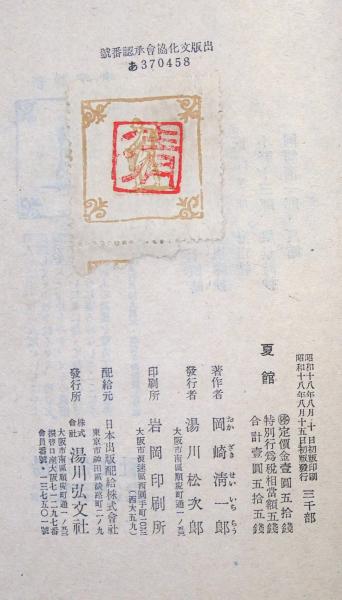 出版文化協會承認番號
あ370458
昭和十八年八月十日初版印刷
昭和十八年八月十五日初版發行
三千部
定價金壹圓五拾錢
特別行爲稅相當額五錢
合計壹圓五拾五錢
夏館
著作者 岡崎清一郎
おかざきせいいちらう
發行者 湯川松次郎
大阪市南區順慶町通一ノ
印刷所 岩岡印刷所
大阪市浪速區西關手町
(西大五九)
配給元 日本出版配給株式會社
東京市神田區淡路町二ノ九
發行所 株式會社 湯川弘文社
大阪市南區順慶町通一ノ
振替口座大阪七一二九七番
會員番號・一三七五〇一號